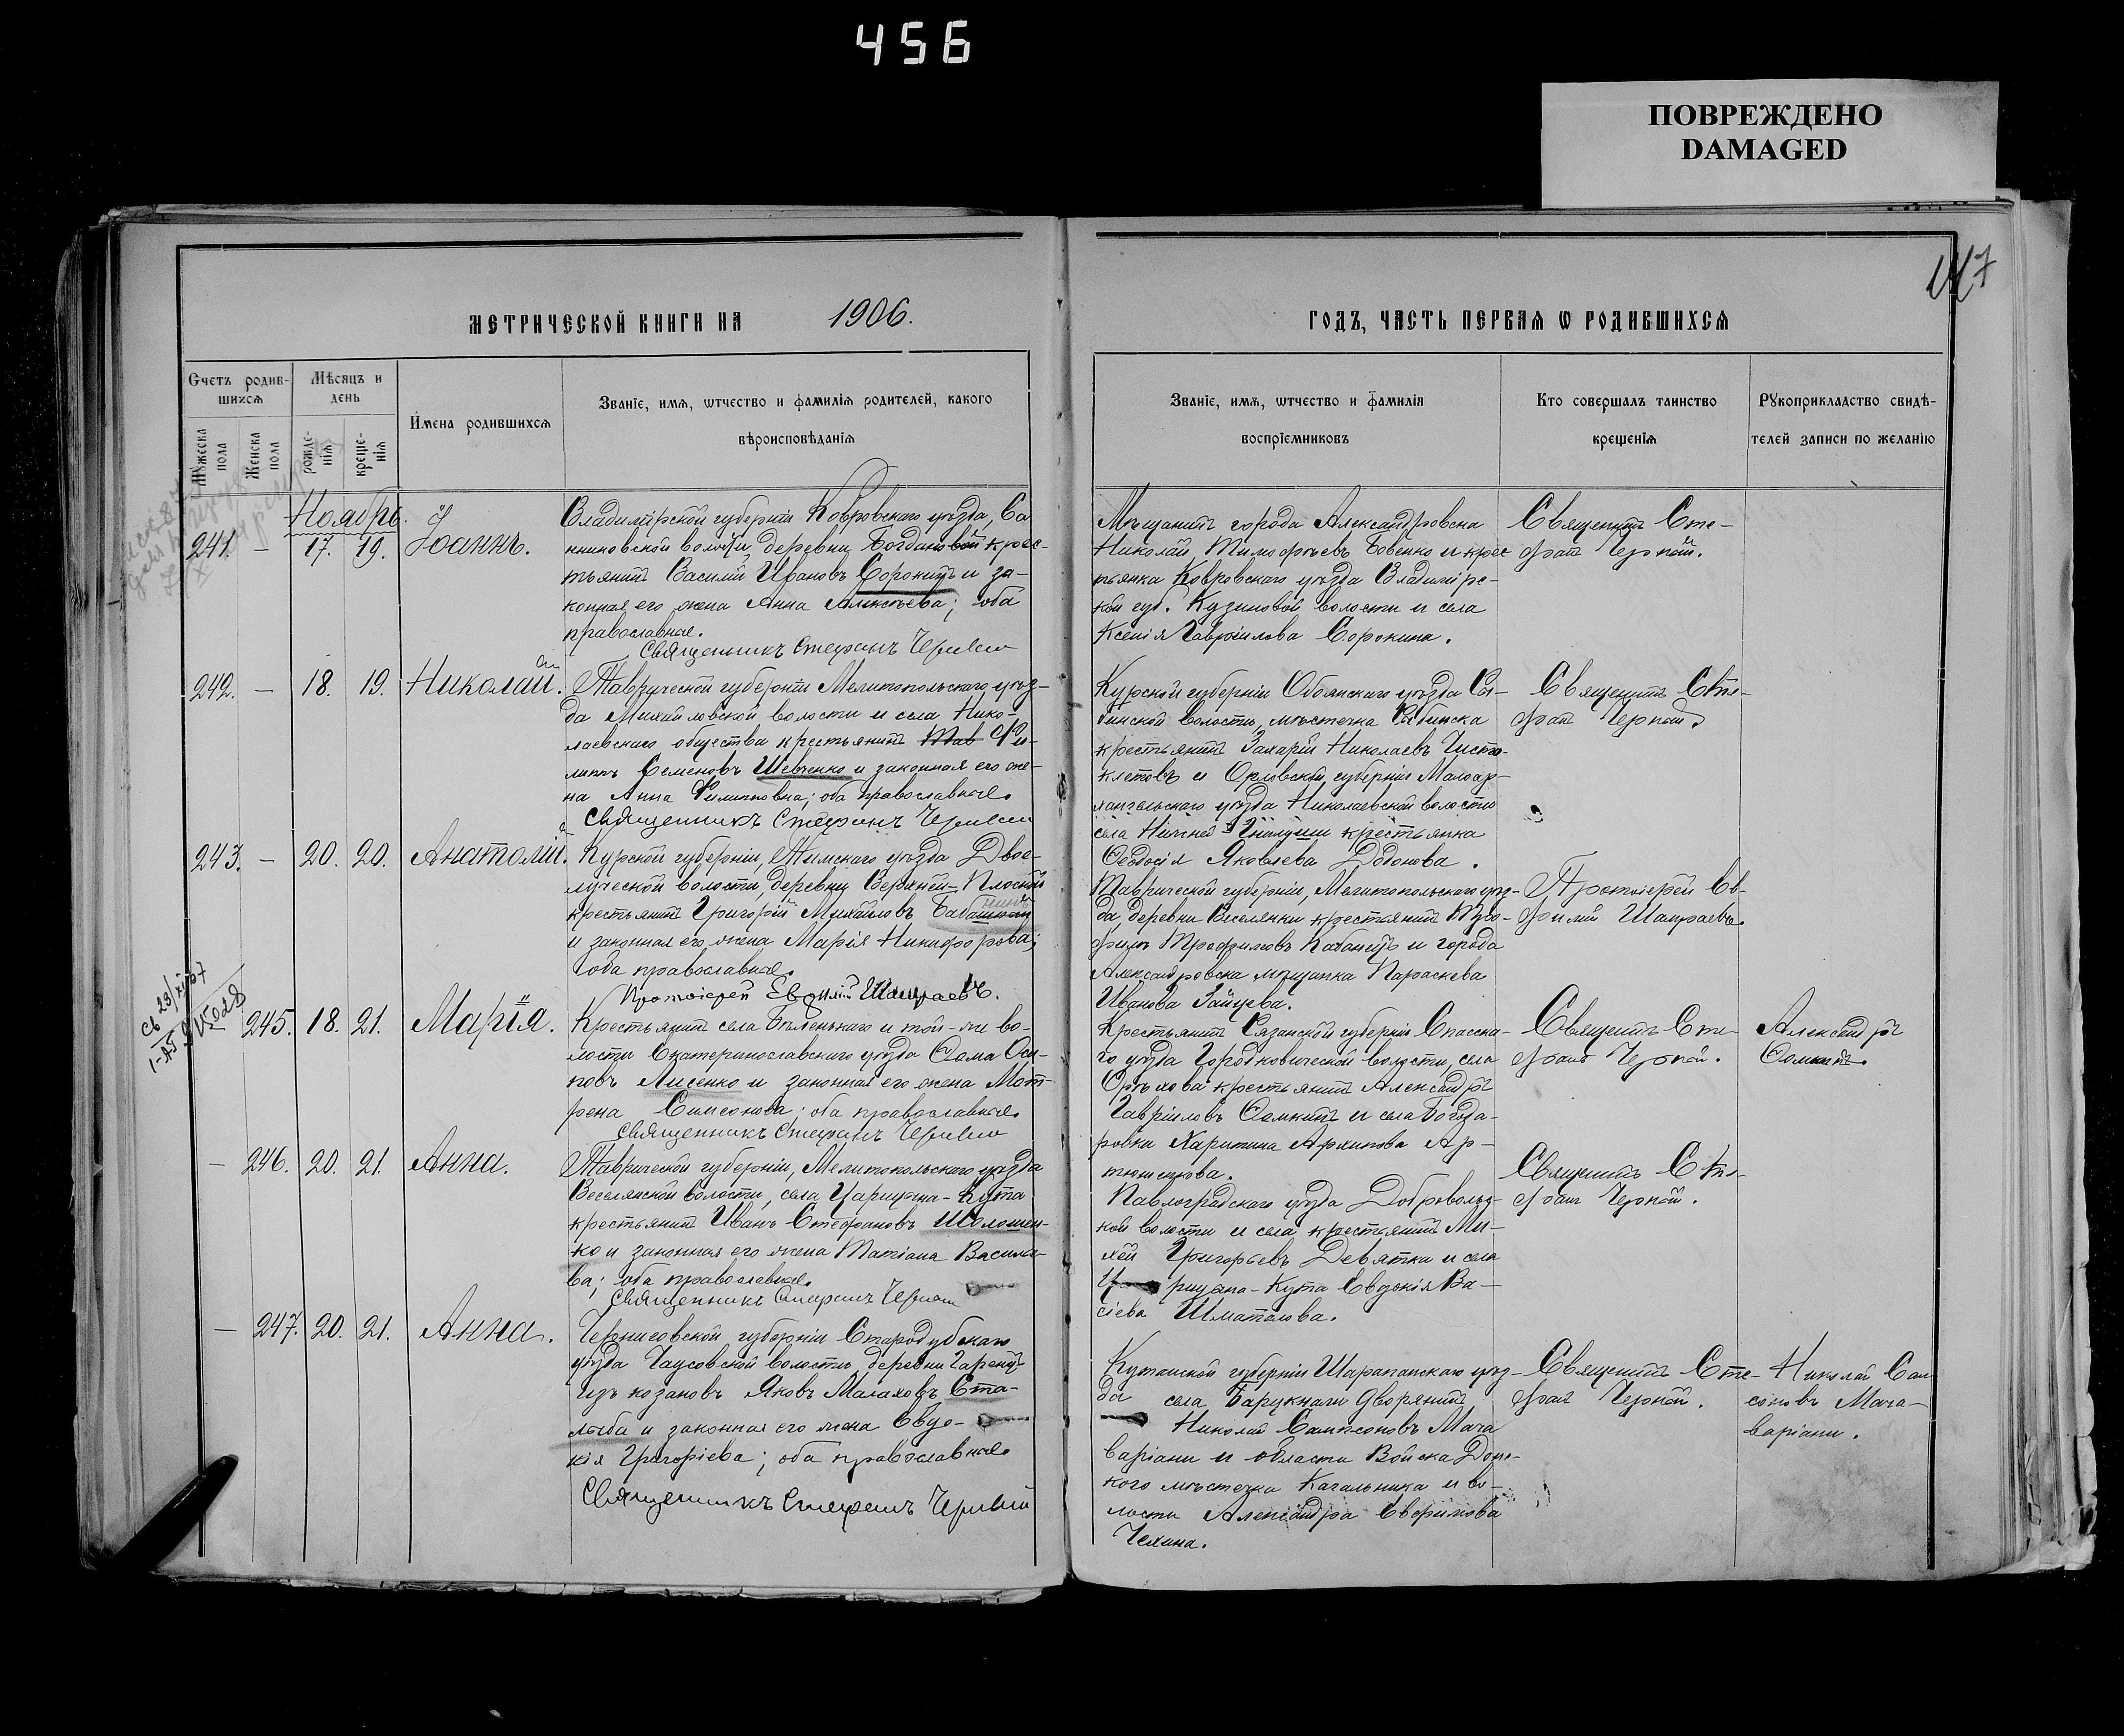 456
ПОВРЕЖДЕНО
DAMAGED
147
МЕТРИЧЕСКОЙ КНИГИ НА 1906.
ГОДЪ, ЧАСТЬ ПЕРВАЯ Ѡ РОДИВШИХСЯ
Счетъ родив-
шихся
Мѣсяцъ и
день
Мꙋжеска
пола
Женска
пола
рожде-
нія
креще-
нія
Имена родившихся
Званіе, имя, ѡтчество и фамилія родителей, какого
вѣроисповѣданія
Званіе, имя, ѡтчество и фамилія
воспріемниковъ
Кто совершалъ таинство
крещенія
Рꙋкоприкладство свидѣ-
телей записи по желанію
Ноябрь.
241. — 17. 19. Іоаннъ.
Владимірской губерніи Ковровскаго уѣзда, Са
нниковской волости, деревни Богдановой крес-
тьянинъ Василій Ивановъ Сорокинъ и за-
конная его жена Анна Алексѣева; оба
православные.
Священникъ Стефанъ Черный
Мѣщанинъ города Александровска
Николай Тимофѣевъ Бовенко и крес
тьянка Ковровскаго уѣзда Владимірс-
кой губ. Кузиновой волости и села
Ксенія Гавріилова Сорокина.
Священникъ Сте-
фанъ Черный.
242. — 18. 19. Николай.
Таврической губерніи Мелитопольскаго уѣз-
да Михайловской волости и села Нико-
лаевскаго общества крестьянинъ Фи-
липъ Семеновъ Шевченко и законная его же-
на Анна Филипповна; оба православные.
Священникъ Стефанъ Черный
Курской губерніи Обоянскаго уѣзда
волости, мѣстечка
крестьянинъ Захарій Николаевъ Чисто-
клетовъ и Орловской губерніи Малоар-
хангельскаго уѣзда Николаевской волости
села крестьянка
Ѳеодосія Яковлева Додонова.
Священникъ Сте-
фанъ Черный
243. — 20. 20. Анатолій.
Курской губерніи, Тимскаго уѣзда Двое-
лученской волости, деревни Верхней-Плоской
крестьянинъ Григорій Михайловъ
и законная его жена Марія Никифорова;
оба православные.
Протоіерей Евфимій Шапраевъ.
Таврической губерніи, Мелитопольскаго уѣз-
да, деревни Веселянки крестьянинъ Тро-
фимъ Трофимовъ Кабанецъ и города
Александровска мѣщанка Параскева
Иванова Зайцева.
Протоіерей Ев-
фимій Шапраевъ.
— 245. 18. 21. Марія.
Крестьянинъ села Бѣленькаго и той-же во-
лости Екатеринославскаго уѣзда Сама Оси-
повъ Лисенко и законная его жена Мот-
рона Симеонова; оба православные.
Священникъ Стефанъ Черный
Крестьянинъ Рязанской губерніи Спасска-
го уѣзда Городковической волости, села
Орѣхова крестьянинъ Александръ
Гавріиловъ Сомкинъ и села Богода-
ровки Харитина Архипова Ар-
тюшекова.
Священникъ Сте-
фанъ Черный.
Александръ
Сомкинъ.
— 246. 20. 21. Анна.
Таврической губерніи, Мелитопольскаго уѣзда
Веселянской волости, села Царицына-Кута
крестьянинъ Иванъ Стефановъ Шолошен-
ко и законная его жена Татіана Василье-
ва; оба православные.
Священникъ Стефанъ Черный
Павлоградскаго уѣзда Добровольс-
кой волости и села крестьянинъ Ми-
хей Григорьевъ Девятка и села
Царицына-Кута Евдокія Ва-
сіева Шматлова.
Священникъ Сте-
фанъ Черный.
— 247. 20. 21. Анна.
Черниговской губерніи Стародубскаго
уѣзда Чаусовской волости, деревни
изъ козаковъ Яковъ Малаховъ Ста-
лыба и законная его жена Евдо-
кія Григоріева; оба православные.
Священникъ Стефанъ Черный
Кутаиской губерніи Шарапанскаго уѣз-
да села дворянинъ
Николай Сампсоновъ Мача
варіани и области Войска Донс-
кого мѣстечка Кагальника и во-
лости Александра Евфимова
Чехина.
Священникъ Сте-
фанъ Черный.
Николай Сам
соновъ Мача-
варіани.